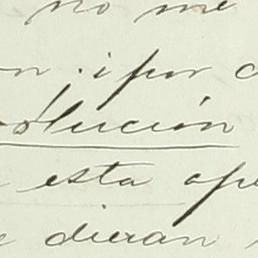 no me
n. ipor
olución
esta ope
e dieran